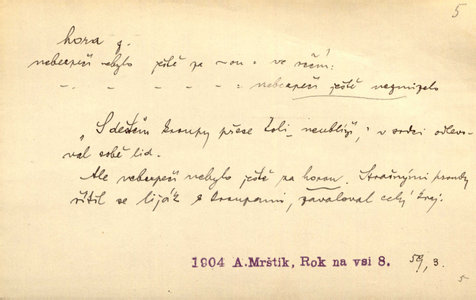 5
hora f.
nebezpečí nebylo ještě za ~ou = ve rčení:
– . – – – – = nebezpečí ještě nezmizelo
„S deštěm kroupy přece toli neublíží," v srdci odlevoval sobě lid.
Ale nebezpečí nebylo ještě za horou. Strašnými proudy
řítil se liják s kroupami, zavaloval celý kraj.
1904 A.Mrštík, Rok na vsi 8. 59, 3.
5